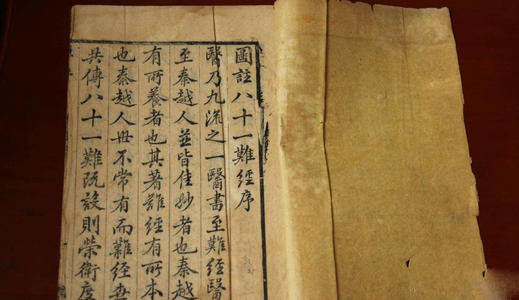 圖註八十一難經序
醫乃九流之一醫書至難經醫
至秦越人並皆佳妙者也秦越
有所養者也其著難經有所本
也秦越人毋不常有而難經世
共傳八十一難既設則榮衛度